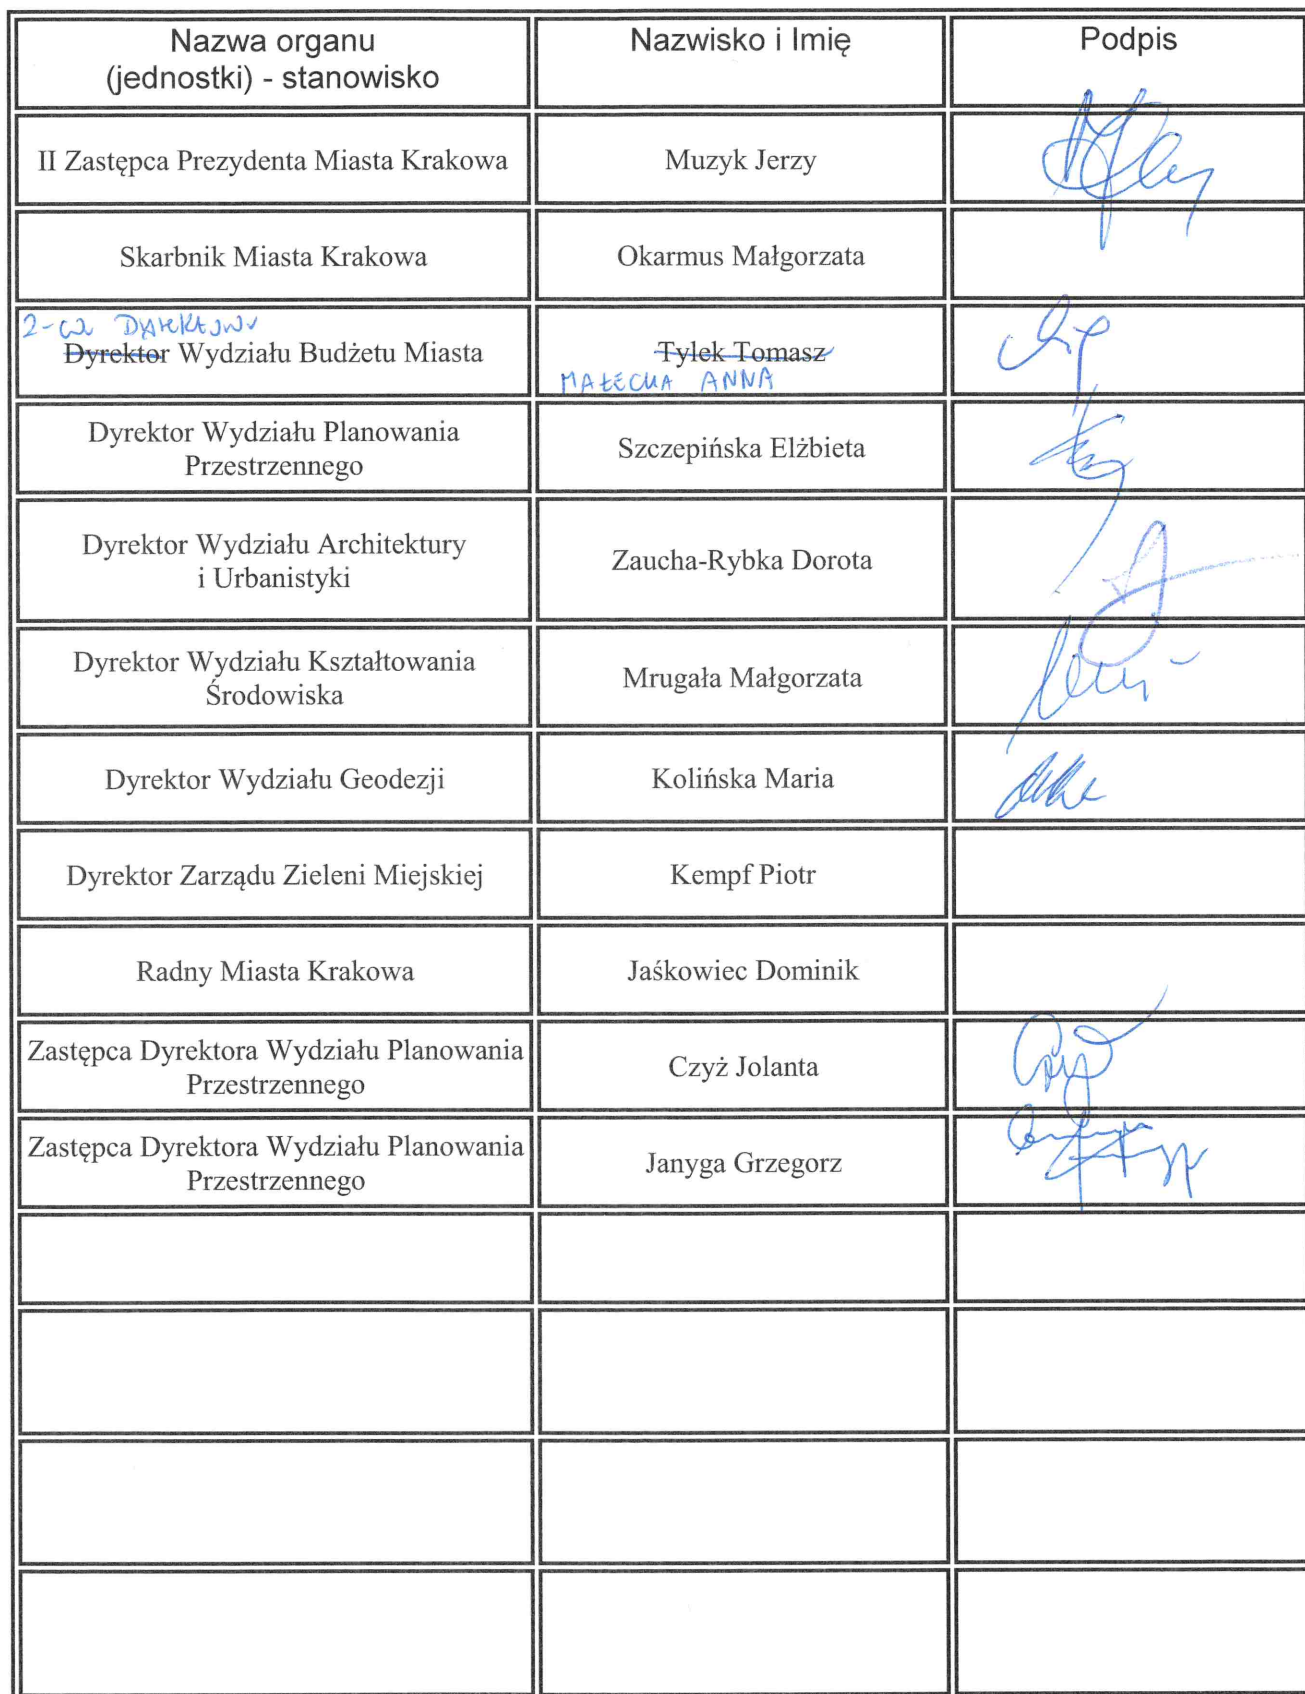 Nazwa organu
(jednostki) - stanowisko
Nazwisko i Imię
Podpis
II Zastępca Prezydenta Miasta Krakowa
Muzyk Jerzy
Skarbnik Miasta Krakowa
Okarmus Małgorzata
Dyrektor Wydziału Budżetu Miasta
Tylek Tomasz
MAŁECKA ANNA
Dyrektor Wydziału Planowania
Przestrzennego
Szczepińska Elżbieta
Dyrektor Wydziału Architektury
i Urbanistyki
Zaucha-Rybka Dorota
Dyrektor Wydziału Kształtowania
Środowiska
Mrugała Małgorzata
Dyrektor Wydziału Geodezji
Kolińska Maria
Dyrektor Zarządu Zieleni Miejskiej
Kempf Piotr
Radny Miasta Krakowa
Jaśkowiec Dominik
Zastępca Dyrektora Wydziału Planowania
Przestrzennego
Czyż Jolanta
Zastępca Dyrektora Wydziału Planowania
Przestrzennego
Janyga Grzegorz